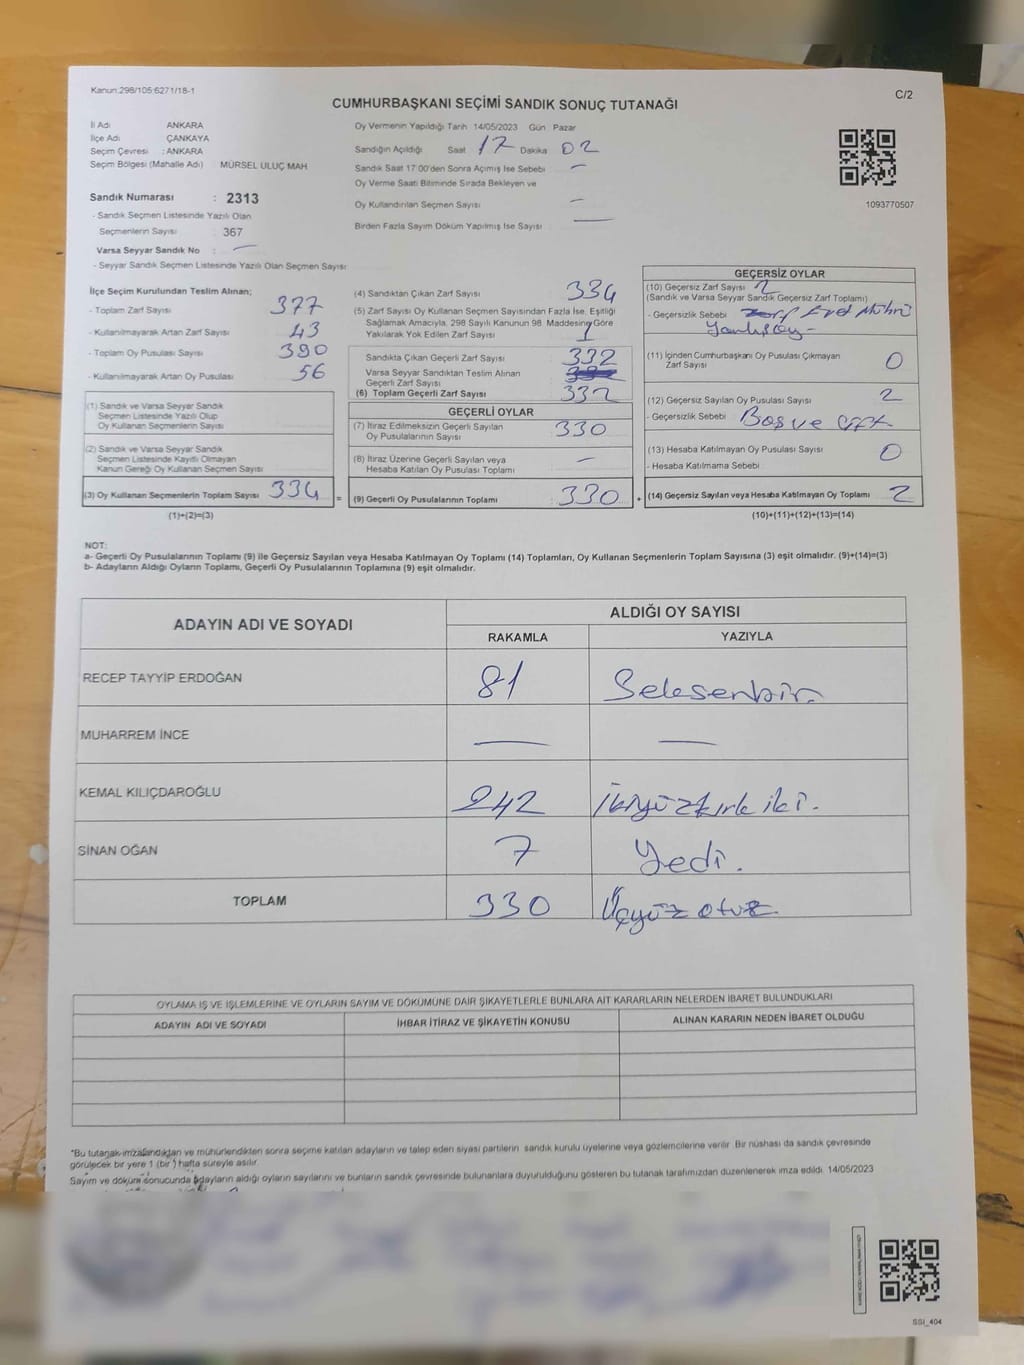 Kanun:298/105:6271/18-1
C/2
CUMHURBAŞKANI SEÇİMİ SANDIK SONUÇ TUTANAĞI
İl Adı ANKARA
İlçe Adı ÇANKAYA
Seçim Çevresi : ANKARA
Seçim Bölgesi (Mahalle Adı) MÜRSEL ULUÇ MAH
Sandık Numarası : 2313
- Sandık Seçmen Listesinde Yazılı Olan
Seçmenlerin Sayısı : 367
Varsa Seyyar Sandık No : —
- Seyyar Sandık Seçmen Listesinde Yazılı Olan Seçmen Sayısı
Oy Vermenin Yapıldığı Tarih 14/05/2023 Gün Pazar
Sandığın Açıldığı Saat 17 Dakika 02
Sandık Saat 17:00'den Sonra Açımış İse Sebebi —
Oy Verme Saati Bitiminde Sırada Bekleyen ve
Oy Kullandırılan Seçmen Sayısı —
Birden Fazla Sayım Döküm Yapılmış İse Sayısı —
1093770507
İlçe Seçim Kurulundan Teslim Alınan;
- Toplam Zarf Sayısı 377
- Kullanılmayarak Artan Zarf Sayısı 43
- Toplam Oy Pusulası Sayısı 390
- Kullanılmayarak Artan Oy Pusulası 56
(1) Sandık ve Varsa Seyyar Sandık
Seçmen Listesinde Yazılı Olup
Oy Kullanan Seçmenlerin Sayısı
(2) Sandık ve Varsa Seyyar Sandık
Seçmen Listesinde Kayıtlı Olmayan
Kanun Gereği Oy Kullanan Seçmen Sayısı
(3) Oy Kullanan Seçmenlerin Toplam Sayısı 334 =
(1)+(2)=(3)
(4) Sandıktan Çıkan Zarf Sayısı 334
(5) Zarf Sayısı Oy Kullanan Seçmen Sayısından Fazla İse, Eşitliği
Sağlamak Amacıyla, 298 Sayılı Kanunun 98. Maddesine Göre
Yakılarak Yok Edilen Zarf Sayısı
Sandıkta Çıkan Geçerli Zarf Sayısı 332
Varsa Seyyar Sandıktan Teslim Alınan
Geçerli Zarf Sayısı
(6) Toplam Geçerli Zarf Sayısı 332
GEÇERLİ OYLAR
(7) İtiraz Edilmeksizin Geçerli Sayılan
Oy Pusulalarının Sayısı : 330
(8) İtiraz Üzerine Geçerli Sayılan veya
Hesaba Katılan Oy Pusulası Toplamı : —
(9) Geçerli Oy Pusulalarının Toplamı : 330 +
GEÇERSİZ OYLAR
(10) Geçersiz Zarf Sayısı 2
(Sandık ve Varsa Seyyar Sandık Geçersiz Zarf Toplamı)
- Geçersizlik Sebebi
(11) İçinden Cumhurbaşkanı Oy Pusulası Çıkmayan
Zarf Sayısı 0
(12) Geçersiz Sayılan Oy Pusulası Sayısı 2
- Geçersizlik Sebebi Boş ve
(13) Hesaba Katılmayan Oy Pusulası Sayısı 0
- Hesaba Katılmama Sebebi
(14) Geçersiz Sayılan veya Hesaba Katılmayan Oy Toplamı 2
(10)+(11)+(12)+(13)=(14)
NOT:
a- Geçerli Oy Pusulalarının Toplamı (9) ile Geçersiz Sayılan veya Hesaba Katılmayan Oy Toplamı (14) Toplamları, Oy Kullanan Seçmenlerin Toplam Sayısına (3) eşit olmalıdır. (9)+(14)=(3)
b- Adayların Aldığı Oyların Toplamı, Geçerli Oy Pusulalarının Toplamına (9) eşit olmalıdır.
ADAYIN ADI VE SOYADI
ALDIĞI OY SAYISI
RAKAMLA YAZIYLA
RECEP TAYYİP ERDOĞAN 81 Seksenbir
MUHARREM İNCE — —
KEMAL KILIÇDAROĞLU 242 İkiyüzkırk iki.
SİNAN OĞAN 7 Yedi.
TOPLAM 330 Üçyüz otuz
OYLAMA İŞ VE İŞLEMLERİNE VE OYLARIN SAYIM VE DÖKÜMÜNE DAİR ŞİKAYETLERLE BUNLARA AİT KARARLARIN NELERDEN İBARET BULUNDUKLARI
ADAYIN ADI VE SOYADI İHBAR İTİRAZ VE ŞİKAYETİN KONUSU ALINAN KARARIN NEDEN İBARET OLDUĞU
*Bu tutanak imzalandıktan ve mühürlendikten sonra seçime katılan adayların ve talep eden siyasi partilerin sandık kurulu üyelerine veya gözlemcilerine verilir. Bir nüshası da sandık çevresinde
görülecek bir yere 1 (bir ) hafta süreyle asılır.
Sayım ve döküm sonucunda adayların aldığı oyların sayılarını ve bunların sandık çevresinde bulunanlara duyurulduğunu gösteren bu tutanak tarafımızdan düzenlenerek imza edildi. 14/05/2023
SSI_404